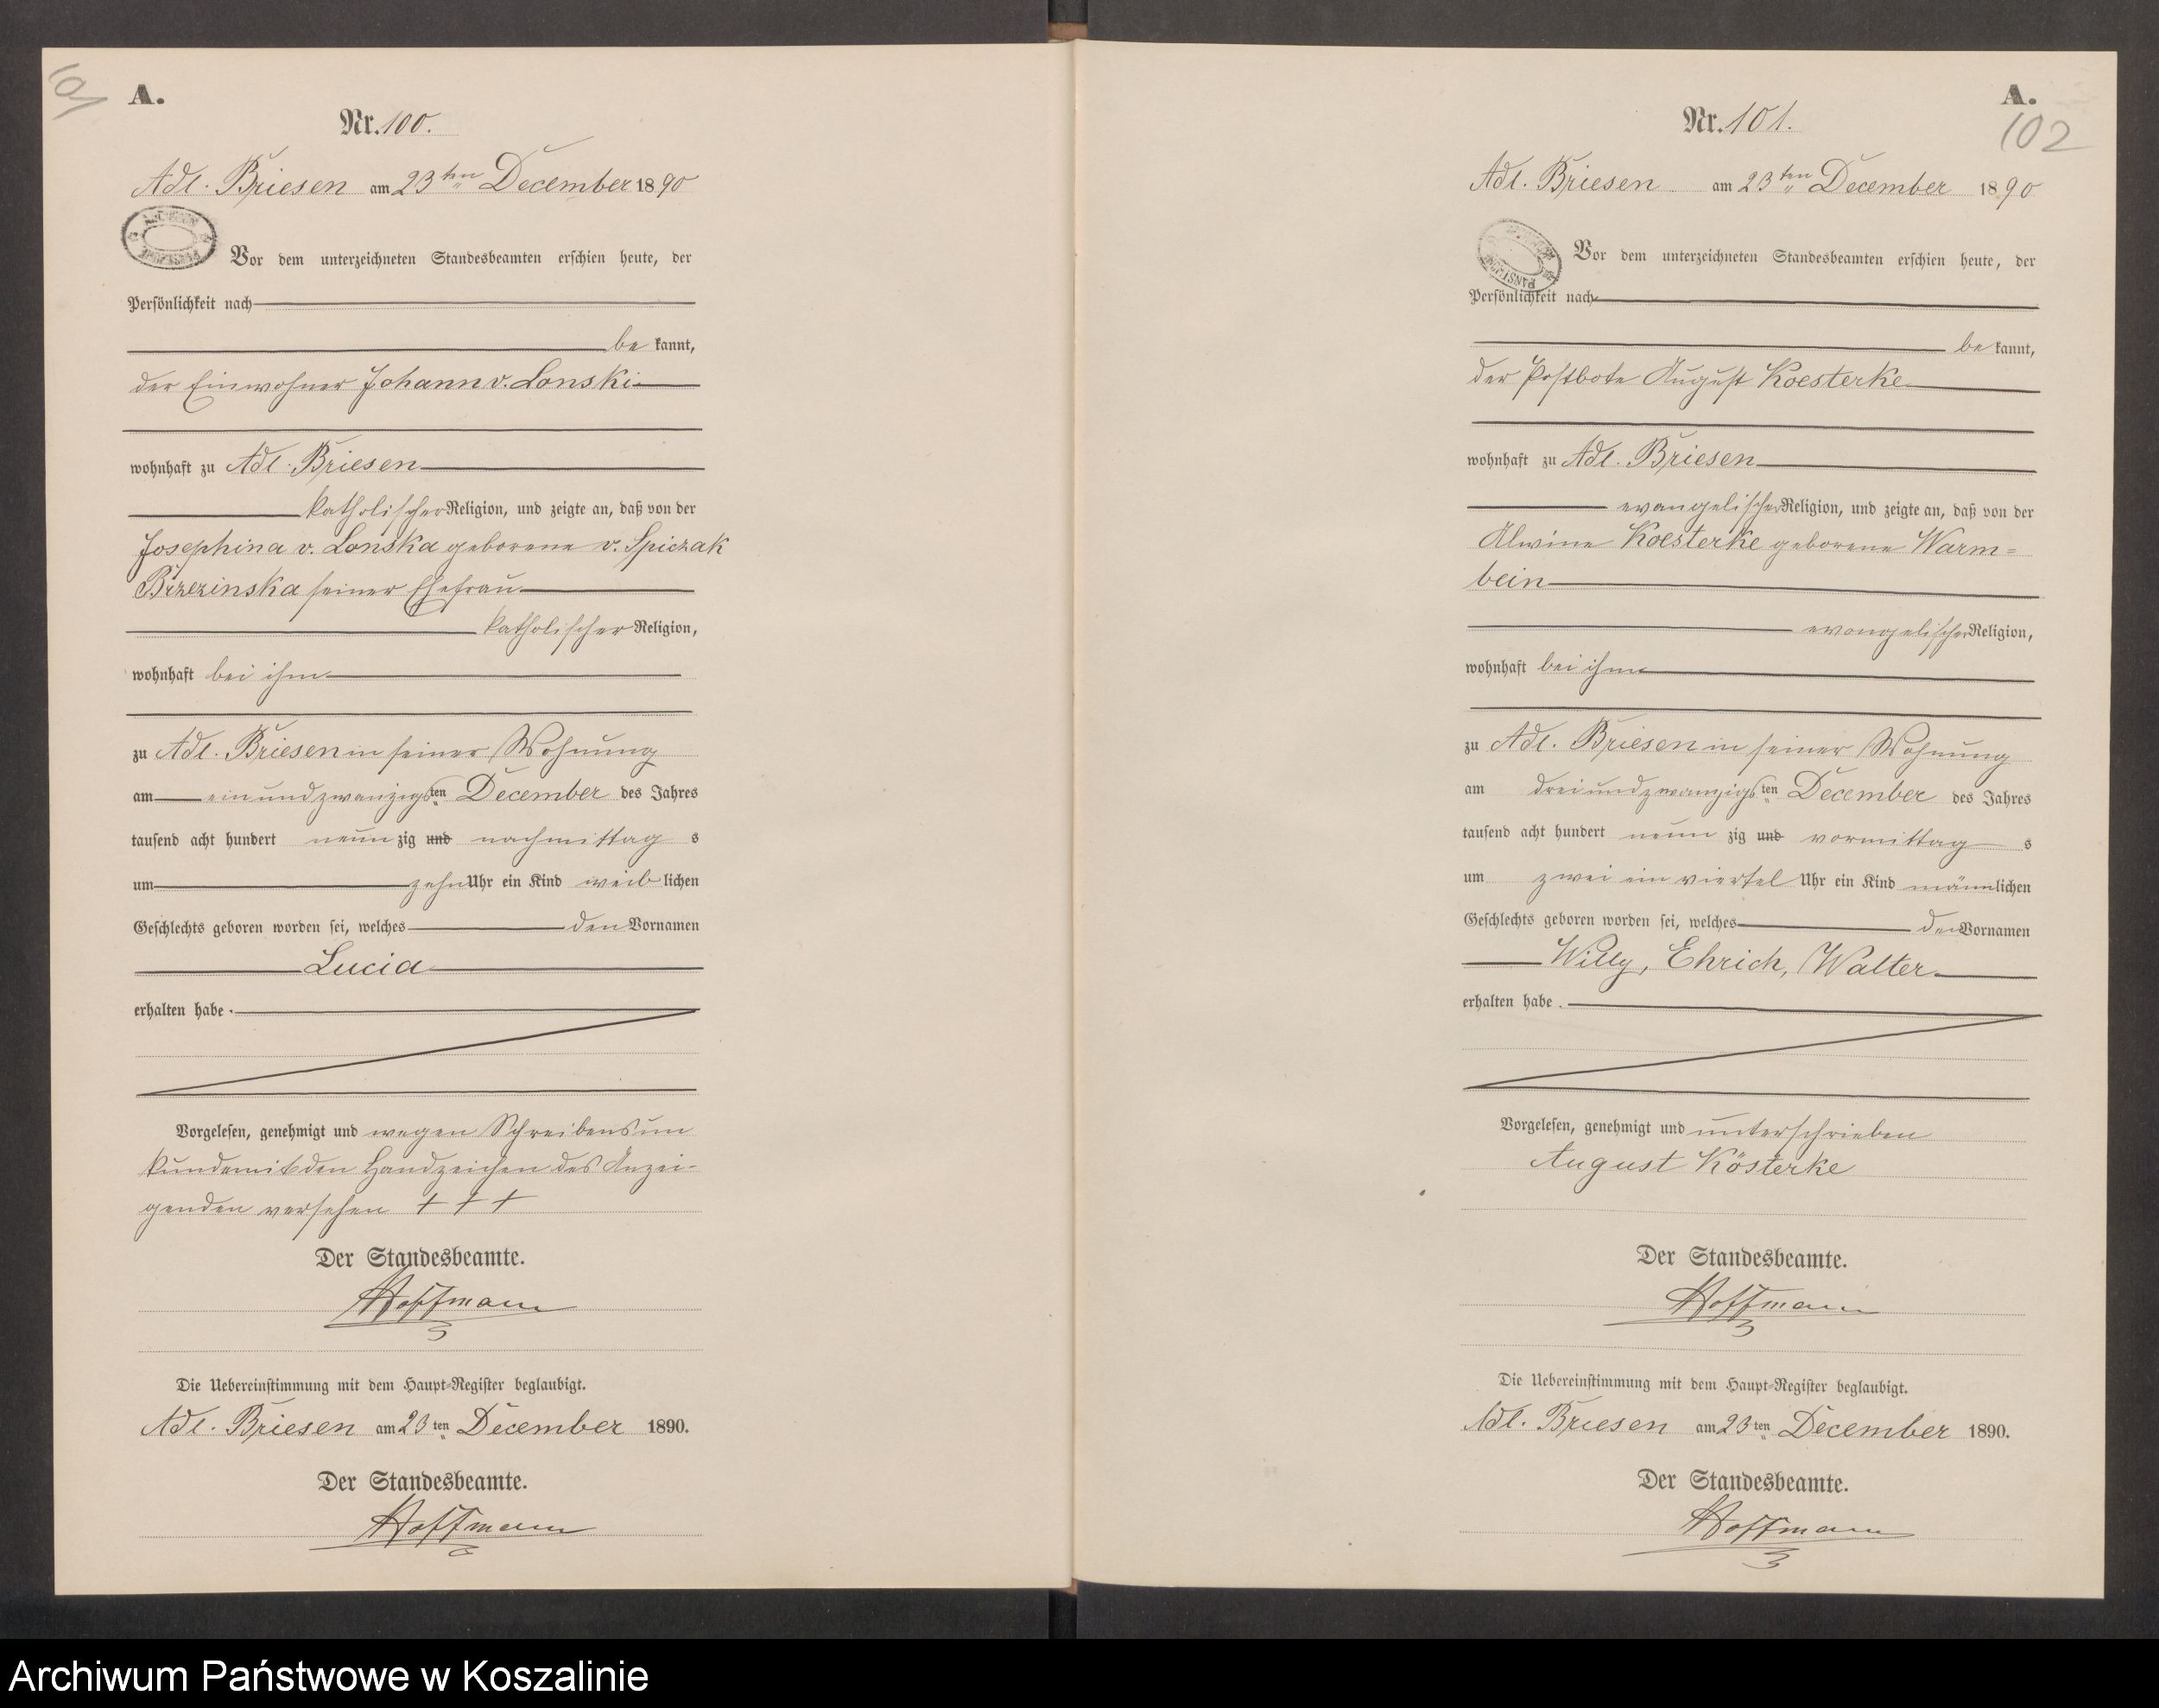 101
A.
Nr. 100.
Adl. Briesen am 23ten December 1890
Vor dem unterzeichneten Standesbeamten erschien heute, der
Persönlichkeit nach
be kannt,
der Einwohner Johann v. Lonski
wohnhaft zu Adl. Briesen
katholischer Religion, und zeigte an, daß von der
Josephina v. Lonska geborene v. Spiczak
Brzezinska seiner Ehefrau
katholischer Religion,
wohnhaft bei ihm
zu Adl. Briesen in seiner Wohnung
am einundzwanzigsten December des Jahres
tausend acht hundert neun zig und nachmittag s
um zehn Uhr ein Kind weib lichen
Geschlechts geboren worden sei, welches den Vornamen
Lucia
erhalten habe.
Vorgelesen, genehmigt und wegen Schreibensun
kunde mit den Handzeichen des Anzei-
genden versehen + + +
Der Standesbeamte.
Hoffmann
Die Uebereinstimmung mit dem Haupt-Register beglaubigt.
Adl. Briesen am 23ten December 1890.
Der Standesbeamte.
Hoffmann
A.
102
Nr. 101.
Adl. Briesen am 23ten December 1890
Vor dem unterzeichneten Standesbeamten erschien heute, der
Persönlichkeit nach
be kannt,
der Postbote August Koesterke
wohnhaft zu Adl. Briesen
evangelischer Religion, und zeigte an, daß von der
Alwine Koesterke geborene Warm=
bein
evangelischer Religion,
wohnhaft bei ihm
zu Adl. Briesen in seiner Wohnung
am dreiundzwanzigsten December des Jahres
tausend acht hundert neun zig und vormittag s
um zwei ein viertel Uhr ein Kind männlichen
Geschlechts geboren worden sei, welches den Vornamen
Willy, Ehrich, Walter
erhalten habe.
Vorgelesen, genehmigt und unterschrieben
August Kösterke
Der Standesbeamte.
Hoffmann
Die Uebereinstimmung mit dem Haupt-Register beglaubigt.
Adl. Briesen am 23ten December 1890.
Der Standesbeamte.
Hoffmann
Archiwum Państwowe w Koszalinie